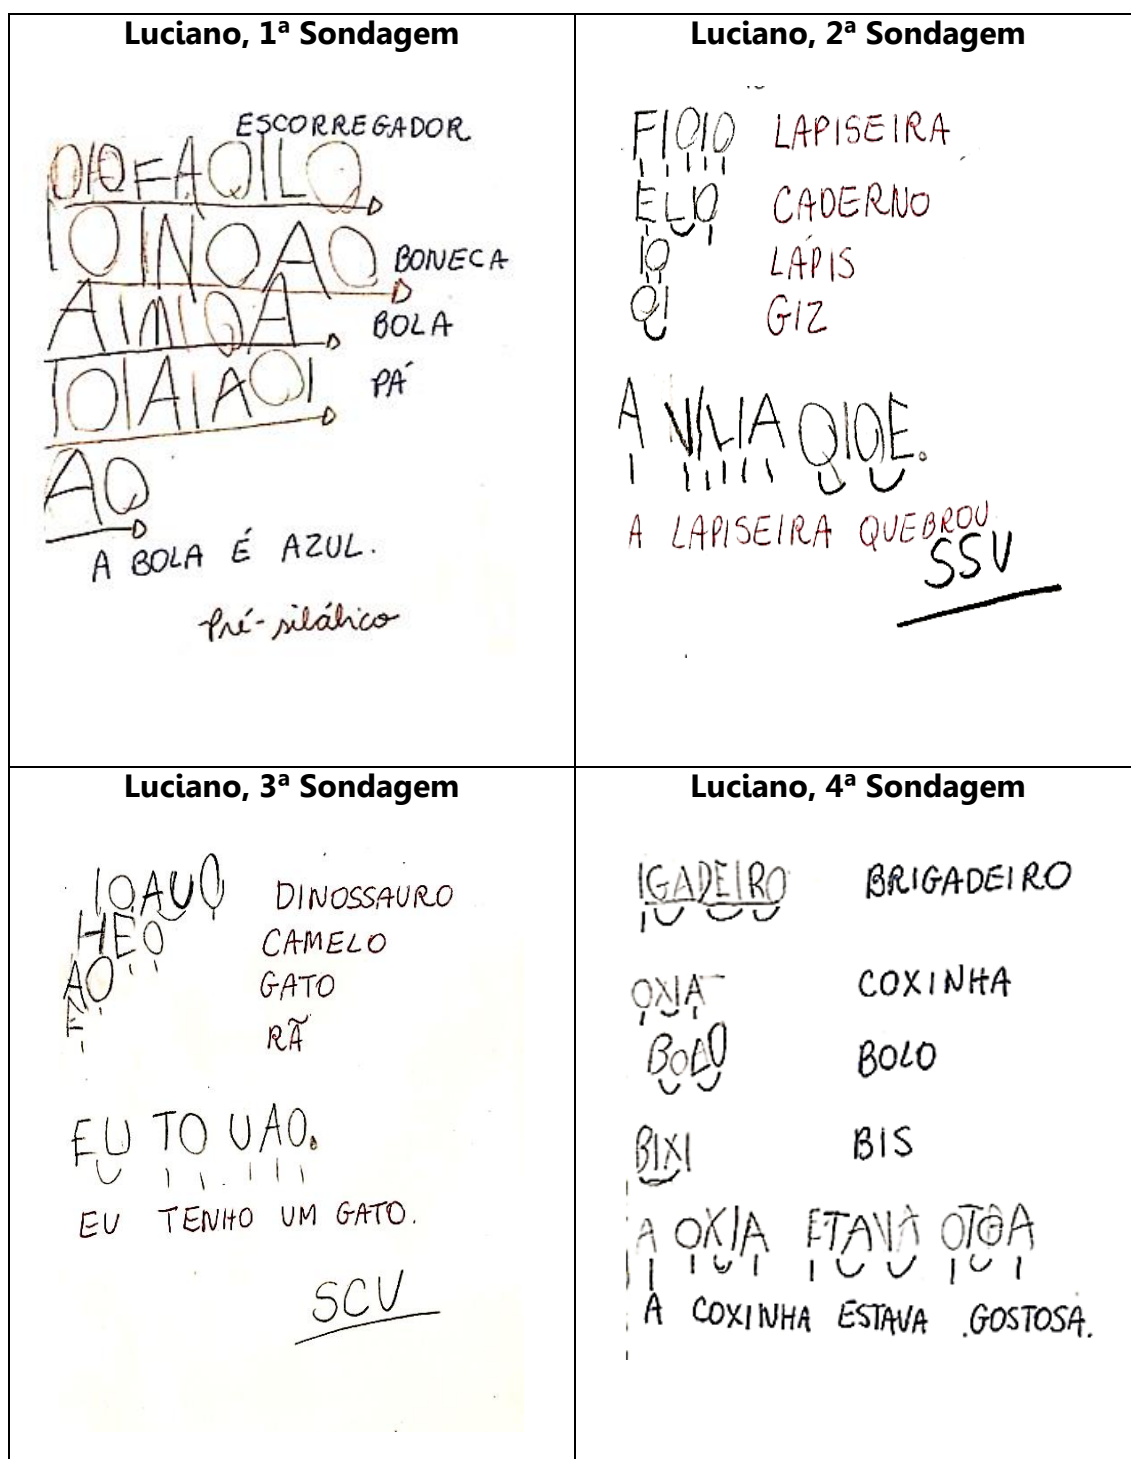 Luciano, 1ª Sondagem
ESCORREGADOR
OIOFAQILO
IOINOAO BONECA
AIMIQA BOLA
IOIAIAOI PÁ
AQ
A BOLA É AZUL.
Pré-silábico
Luciano, 2ª Sondagem
FIOIO LAPISEIRA
ELO CADERNO
IO LÁPIS
QI GIZ
A VILIA QIOE.
A LAPISEIRA QUEBROU.
SSV
Luciano, 3ª Sondagem
IOAUO DINOSSAURO
HEO CAMELO
AO GATO
E RÃ
EU TO UAO.
EU TENHO UM GATO.
SCV
Luciano, 4ª Sondagem
IGADEIRO BRIGADEIRO
OXIA COXINHA
BOLO
BIXI BIS
A OXIA ETAVA OTOA
A COXINHA ESTAVA GOSTOSA.